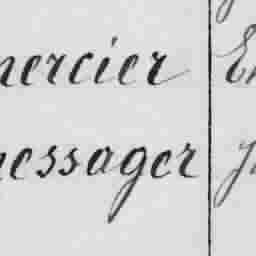 mercier
messager